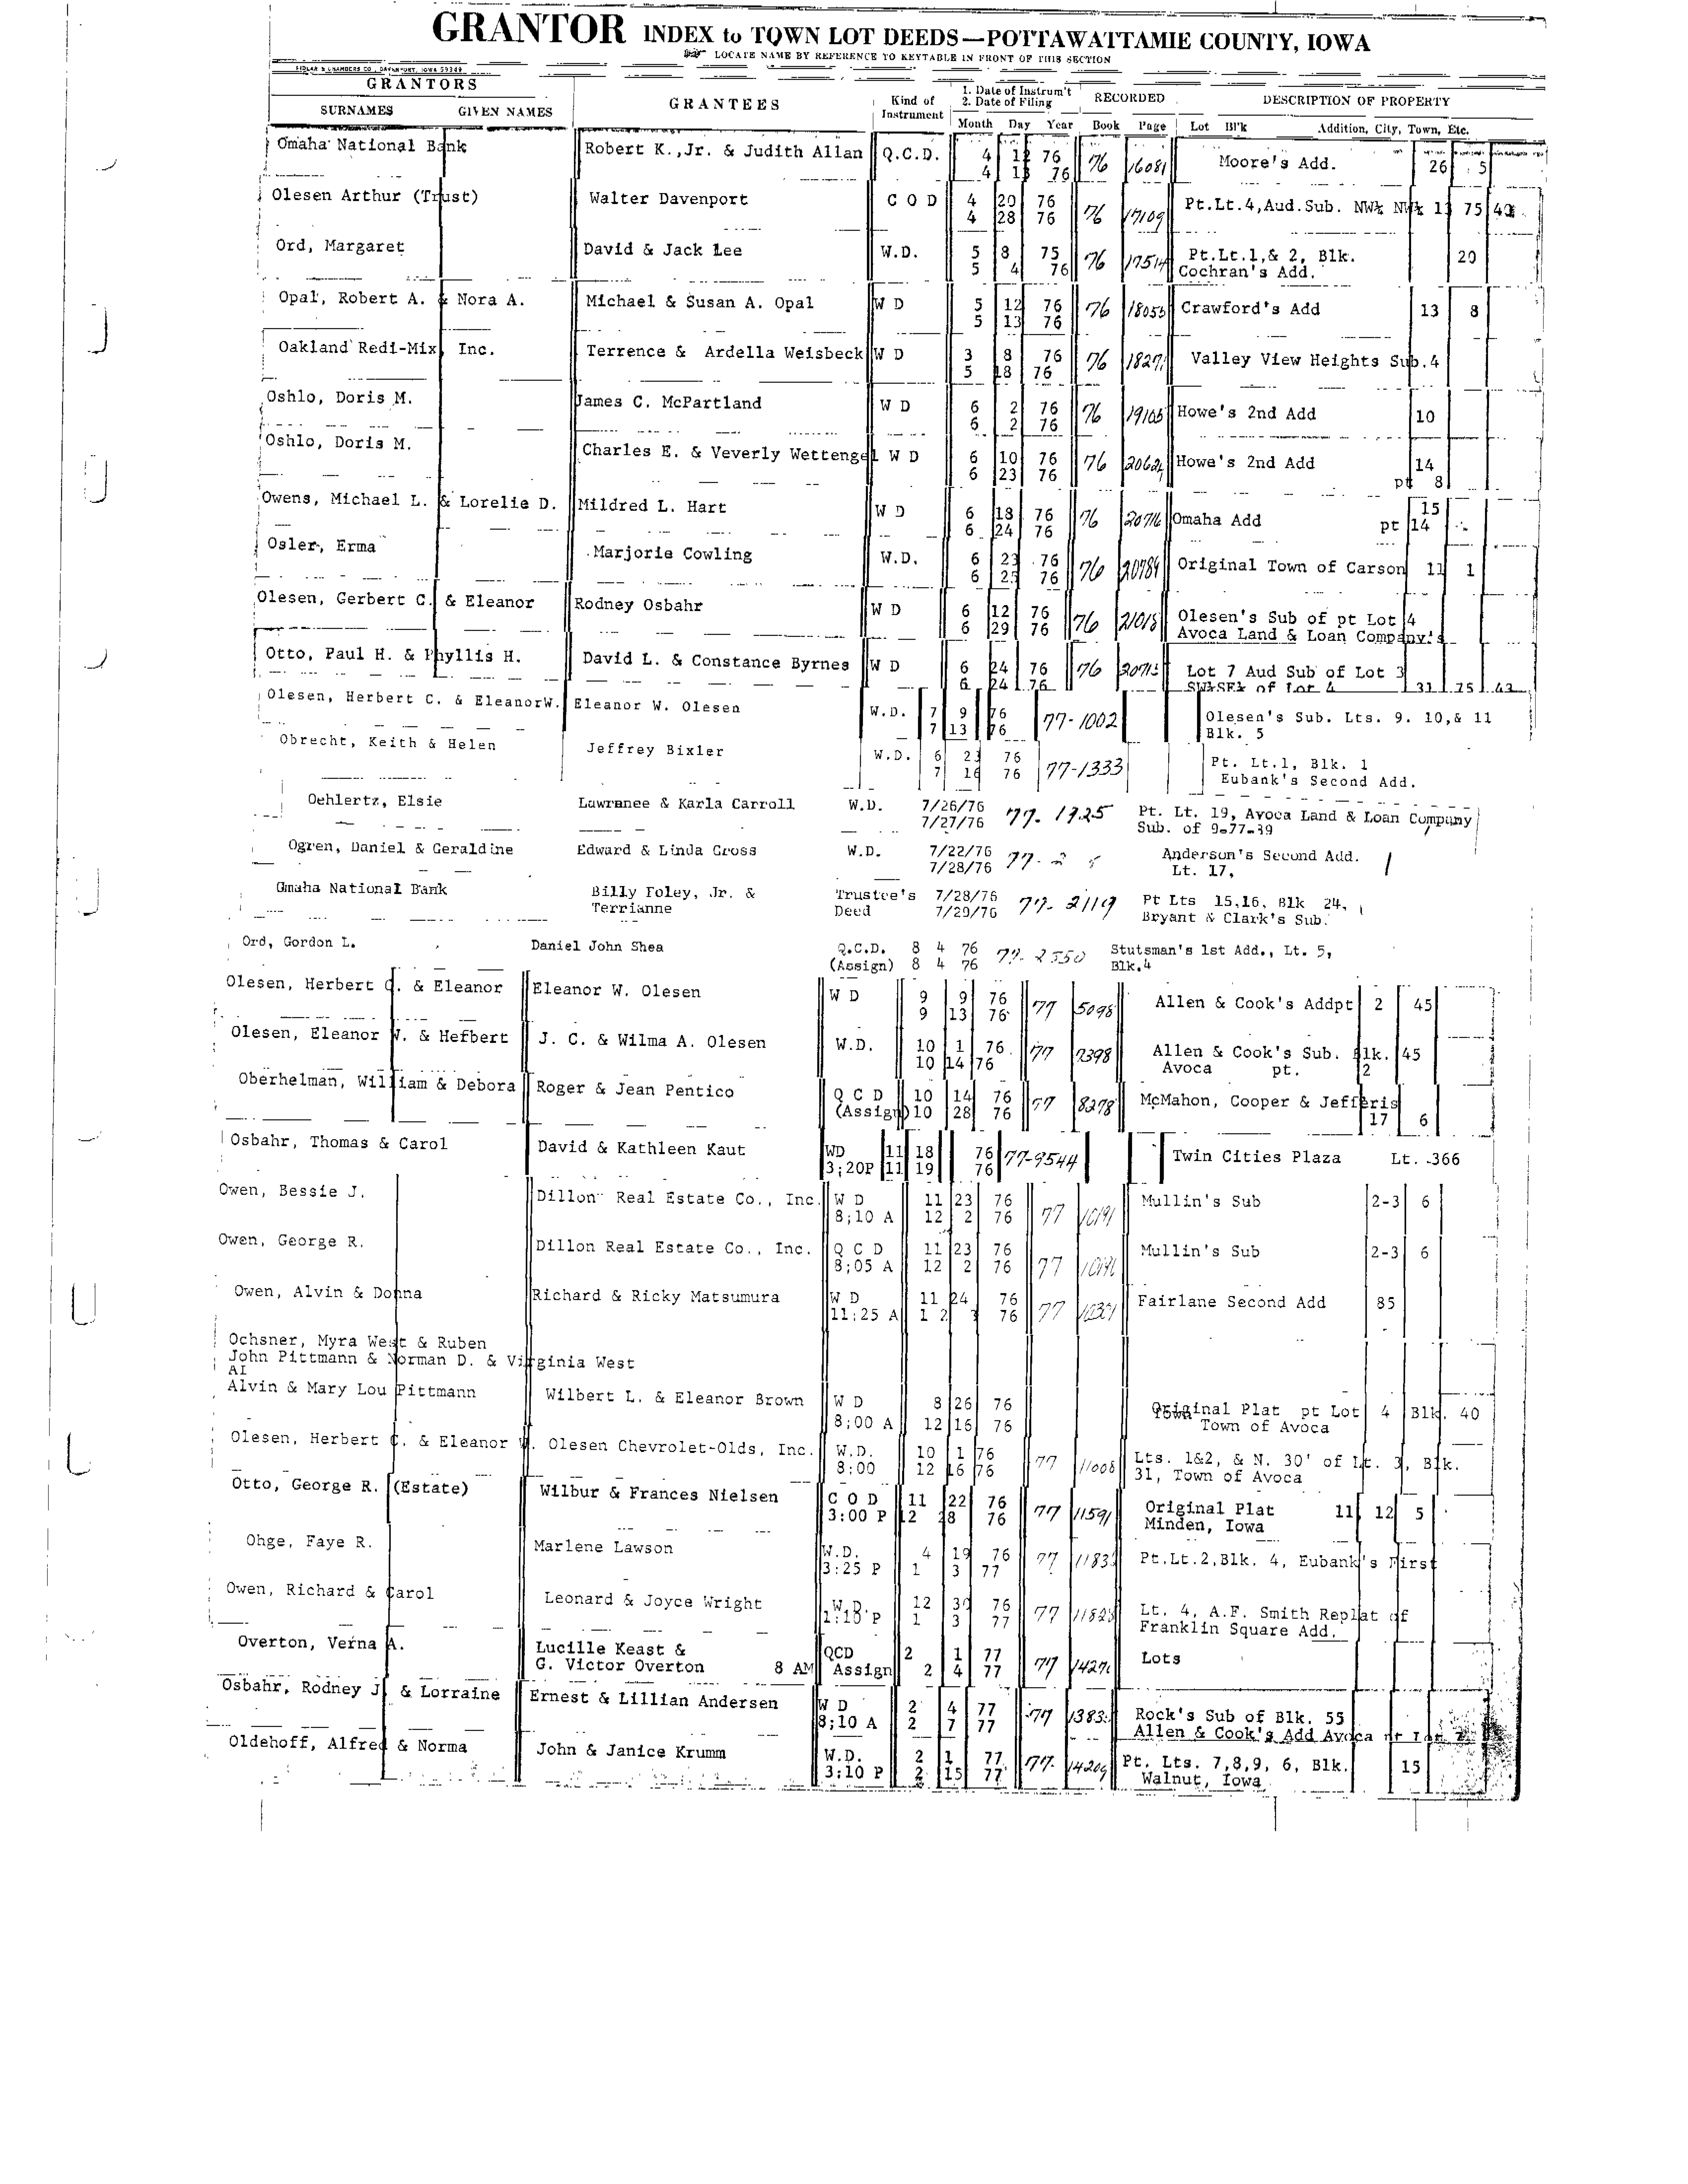 GRANTOR INDEX to TOWN LOT DEEDS—POTTAWATTAMIE COUNTY, IOWA
LOCATE NAME BY REFERENCE TO KEYTABLE IN FRONT OF THIS SECTION
FIDLAR & CHAMBERS CO., DAVENPORT, IOWA
GRANTORS GRANTEES Kind of Instrument 1. Date of Instrum't 2. Date of Filing RECORDED DESCRIPTION OF PROPERTY
SURNAMES GIVEN NAMES Month Day Year Book Page Lot Bl'k Addition, City, Town, Etc.
Omaha National Bank Robert K.,Jr. & Judith Allan Q.C.D. 4 76 76 16081 Moore's Add. 26 5
4 76
Olesen Arthur (Trust) Walter Davenport C O D 4 20 76 76 17109 Pt.Lt.4,Aud.Sub. 75
4 28 76
Ord, Margaret David & Jack Lee W.D. 5 8 75 76 Pt.Lt.1,& 2, Blk. 20
5 4 76 Cochran's Add.
Opal, Robert A. & Nora A. Michael & Susan A. Opal W D 5 12 76 76 Crawford's Add 13 8
5 13 76
Oakland Redi-Mix, Inc. Terrence & Ardella Weisbeck W D 3 8 76 76 Valley View Heights Sub.4
5 18 76
Oshlo, Doris M. James C. McPartland W D 6 2 76 76 19105 Howe's 2nd Add 10
6 2 76
Oshlo, Doris M. Charles E. & Veverly Wettengel W D 6 10 76 76 Howe's 2nd Add 14
6 23 76 pt 8
Owens, Michael L. & Lorelie D. Mildred L. Hart W D 6 18 76 76 20716 Omaha Add 15
6 24 76 pt 14
Osler, Erma Marjorie Cowling W.D. 6 23 76 76 20784 Original Town of Carson 11 1
6 25 76
Olesen, Gerbert C. & Eleanor Rodney Osbahr W D 6 12 76 76 21018 Olesen's Sub of pt Lot 4
6 29 76 Avoca Land & Loan Company's
Otto, Paul H. & Phyllis H. David L. & Constance Byrnes W D 6 24 76 76 Lot 7 Aud Sub of Lot 3
6 24 76 SW¼SE¼ of Lot 4 31 75 43
Olesen, Herbert C. & EleanorW. Eleanor W. Olesen W.D. 7 9 76 77-1002 Olesen's Sub. Lts. 9. 10,& 11
7 13 76 Blk. 5
Obrecht, Keith & Helen Jeffrey Bixler W.D. 6 23 76 77-1333 Pt. Lt.1, Blk. 1
7 16 76 Eubank's Second Add.
Oehlertz, Elsie Lawranee & Karla Carroll W.D. 7/26/76 77-1925 Pt. Lt. 19, Avoca Land & Loan Company
7/27/76 Sub. of 9-77-39
Ogren, Daniel & Geraldine Edward & Linda Gross W.D. 7/22/76 77-2 Anderson's Second Add.
7/28/76 Lt. 17,
Omaha National Bank Billy Foley, Jr. & Trustee's 7/28/76 77-2119 Pt Lts 15,16, Blk 24,
Terrianne Deed 7/29/76 Bryant & Clark's Sub.
Ord, Gordon L. Daniel John Shea Q.C.D. 8 4 76 77-2550 Stutsman's 1st Add., Lt. 5,
(Assign) 8 4 76 Blk.4
Olesen, Herbert C. & Eleanor Eleanor W. Olesen W D 9 9 76 77 5098 Allen & Cook's Addpt 2 45
9 13 76
Olesen, Eleanor W. & Herbert J. C. & Wilma A. Olesen W.D. 10 1 76 77 7398 Allen & Cook's Sub. Blk. 45
10 14 76 Avoca pt. 2
Oberhelman, William & Debora Roger & Jean Pentico Q C D 10 14 76 77 8278 McMahon, Cooper & Jefferis
(Assign) 10 28 76 17 6
Osbahr, Thomas & Carol David & Kathleen Kaut WD 11 18 76 77-9544 Twin Cities Plaza Lt. 366
3;20P 11 19 76
Owen, Bessie J. Dillon Real Estate Co., Inc. W D 11 23 76 77 10191 Mullin's Sub 2-3 6
8;10 A 12 2 76
Owen, George R. Dillon Real Estate Co., Inc. Q C D 11 23 76 77 Mullin's Sub 2-3 6
8;05 A 12 2 76
Owen, Alvin & Donna Richard & Ricky Matsumura W D 11 24 76 77 Fairlane Second Add 85
11;25 A 1 2 76
Ochsner, Myra West & Ruben
John Pittmann & Norman D. & Virginia West
AI
Alvin & Mary Lou Pittmann Wilbert L. & Eleanor Brown W D 8 26 76 Original Plat pt Lot 4 Blk. 40
8:00 A 12 16 76 Town of Avoca
Olesen, Herbert C. & Eleanor W. Olesen Chevrolet-Olds, Inc. W.D. 10 1 76 77 11008 Lts. 1&2, & N. 30' of Lt. 3, Blk.
8:00 12 16 76 31, Town of Avoca
Otto, George R. (Estate) Wilbur & Frances Nielsen C O D 11 22 76 77 11591 Original Plat 11 12 5
3:00 P 12 28 76 Minden, Iowa
Ohge, Faye R. Marlene Lawson W.D. 4 19 76 77 Pt.Lt.2,Blk. 4, Eubank's First
3:25 P 1 3 77
Owen, Richard & Carol Leonard & Joyce Wright W.D. 12 30 76 77 Lt. 4, A.F. Smith Replat of
P 1 3 77 Franklin Square Add.
Overton, Verna A. Lucille Keast & QCD 2 1 77 77 Lots
G. Victor Overton 8 AM Assign 2 4 77
Osbahr, Rodney J & Lorraine Ernest & Lillian Andersen W D 2 4 77 77 Rock's Sub of Blk. 55
8;10 A 2 7 77 Allen & Cook's Add Avoca
Oldehoff, Alfred & Norma John & Janice Krumm W.D. 2 1 77 77 14209 Pt. Lts. 7,8,9, 6, Blk. 15
3:10 P 2 15 77 Walnut, Iowa